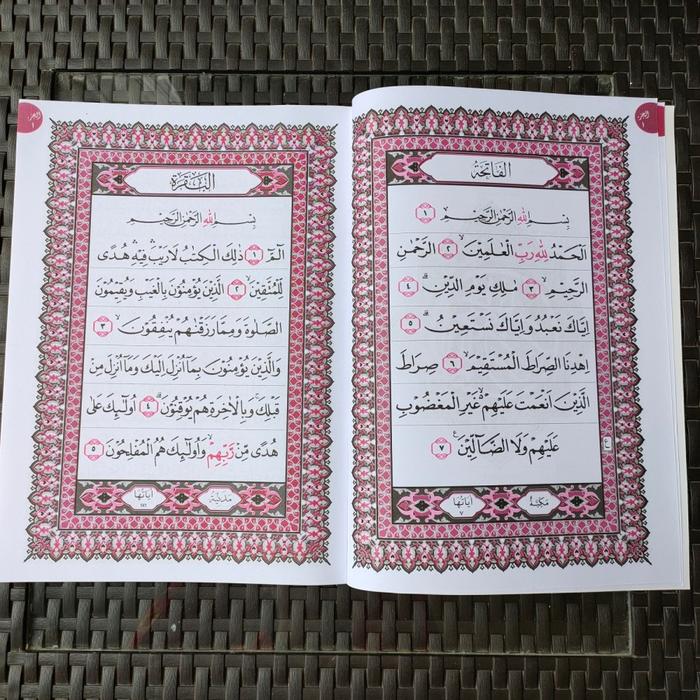 الجزء ١
الفاتحة
بِسْمِ اللهِ الرَّحْمٰنِ الرَّحِيْمِ ۝١
اَلْحَمْدُ لِلّٰهِ رَبِّ الْعٰلَمِيْنَۙ ۝٢ الرَّحْمٰنِ
الرَّحِيْمِۙ ۝٣ مٰلِكِ يَوْمِ الدِّيْنِۗ ۝٤
اِيَّاكَ نَعْبُدُ وَاِيَّاكَ نَسْتَعِيْنُۗ ۝٥
اِهْدِنَا الصِّرَاطَ الْمُسْتَقِيْمَۙ ۝٦ صِرَاطَ
الَّذِيْنَ اَنْعَمْتَ عَلَيْهِمْۙ غَيْرِ الْمَغْضُوْبِ
عَلَيْهِمْ وَلَا الضَّاۤلِّيْنَࣖ ۝٧
ع
مكية
آياتها ٧
الجزء ١
البقرة
بِسْمِ اللهِ الرَّحْمٰنِ الرَّحِيْمِ
الۤمّۤۚ ۝١ ذٰلِكَ الْكِتٰبُ لَا رَيْبَۛ فِيْهِۛ هُدًى
لِّلْمُتَّقِيْنَۙ ۝٢ الَّذِيْنَ يُؤْمِنُوْنَ بِالْغَيْبِ وَيُقِيْمُوْنَ
الصَّلٰوةَ وَمِمَّا رَزَقْنٰهُمْ يُنْفِقُوْنَۙ ۝٣
وَالَّذِيْنَ يُؤْمِنُوْنَ بِمَآ اُنْزِلَ اِلَيْكَ وَمَآ اُنْزِلَ مِنْ
قَبْلِكَۚ وَبِالْاٰخِرَةِ هُمْ يُوْقِنُوْنَۗ ۝٤ اُولٰۤىِٕكَ عَلٰى
هُدًى مِّنْ رَّبِّهِمْۙ وَاُولٰۤىِٕكَ هُمُ الْمُفْلِحُوْنَ ۝٥
مدنية
آياتها ٢٨٦